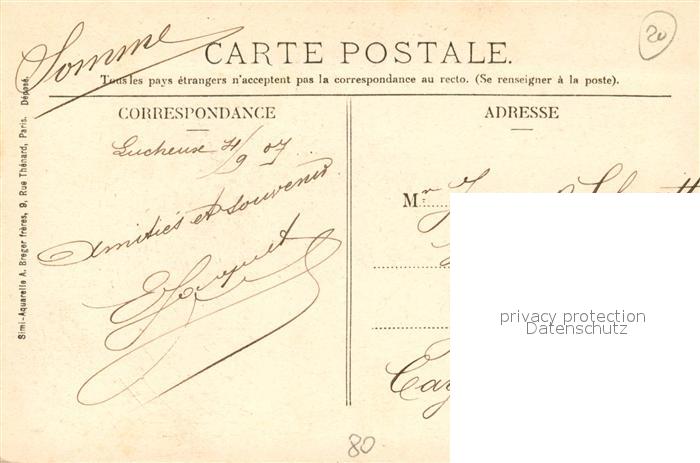 Somme
20
CARTE POSTALE.
Tous les pays étrangers n'acceptent pas la correspondance au recto. (Se renseigner à la poste).
CORRESPONDANCE
ADRESSE
Lucheux 4/9 07
Amitiés et souvenir
Mr
privacy protection
Datenschutz
80
Simi-Aquarelle A. Breger frères, 9, Rue Thénard, Paris. Déposé.